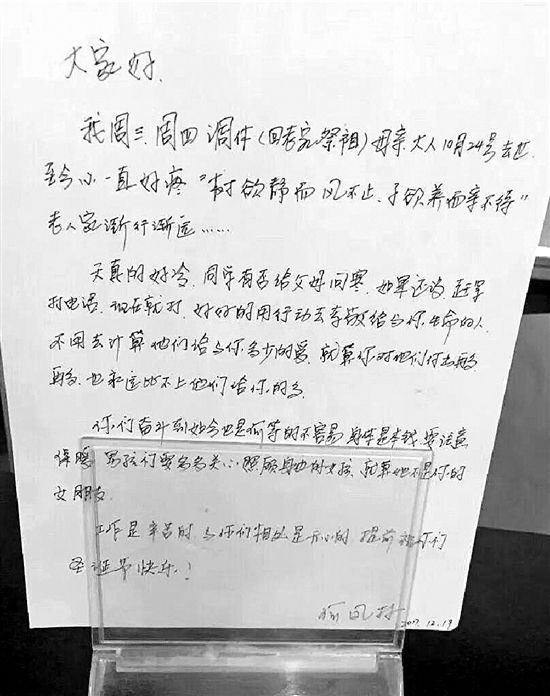 大家好.
我周三、周四调休(回老家祭祖)母亲大人10月24号去世.
至今心一直好疼"树欲静而风不止、子欲养而亲不待"
老人家渐行渐远……
天真的好冷、同学有否给父母问寒、如果还没 赶紧
打电话、现在就打、好好的用行动去孝敬给与你生命的人、
不用去计算他们给与你多少的爱、就算你对他们付出再多
再多、也永远比不上他们给你的多.
你们奋斗到如今也是何等的不容易 身体是本钱、要注意
保暖 男孩们要多多关心照顾身边的女孩、就算她不是你的
女朋友.
工作是辛苦的、与你们相处是开心的 提前祝你们
圣诞节快乐!
2017.12.19